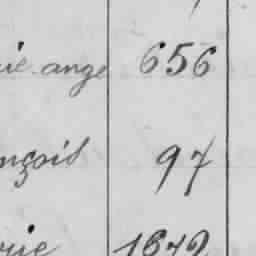 rie ange 656
nçois 97
rie 1872